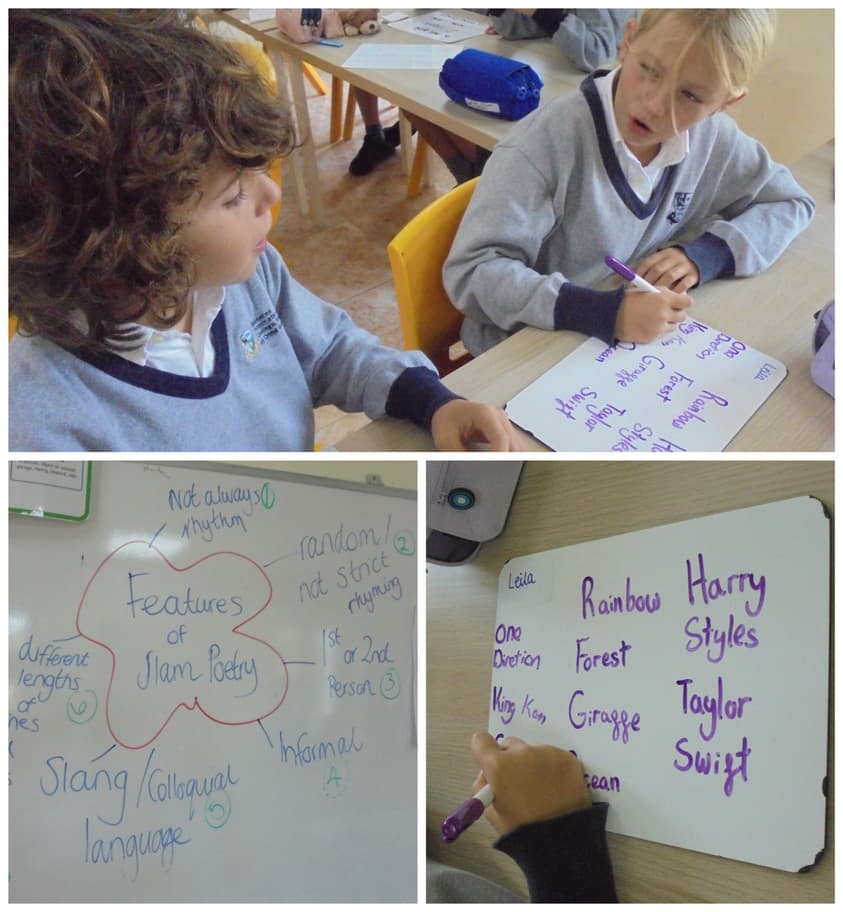 Leila
One
Direction
King Kon
Rainbow
Forest
Giragge
Ocean
Styles
Taylor
Swift
Features
of
Slam Poetry
Not always 1
rhythm
random/ 2
not strict
rhyming
1st
or 2nd
Person 3
Informal
4
Slang/Colloqual
5
language
different
lengths
of 6
Leila
One
Diretion
King Kon
Rainbow
Forest
Giragge
cean
Harry
Styles
Taylor
Swift